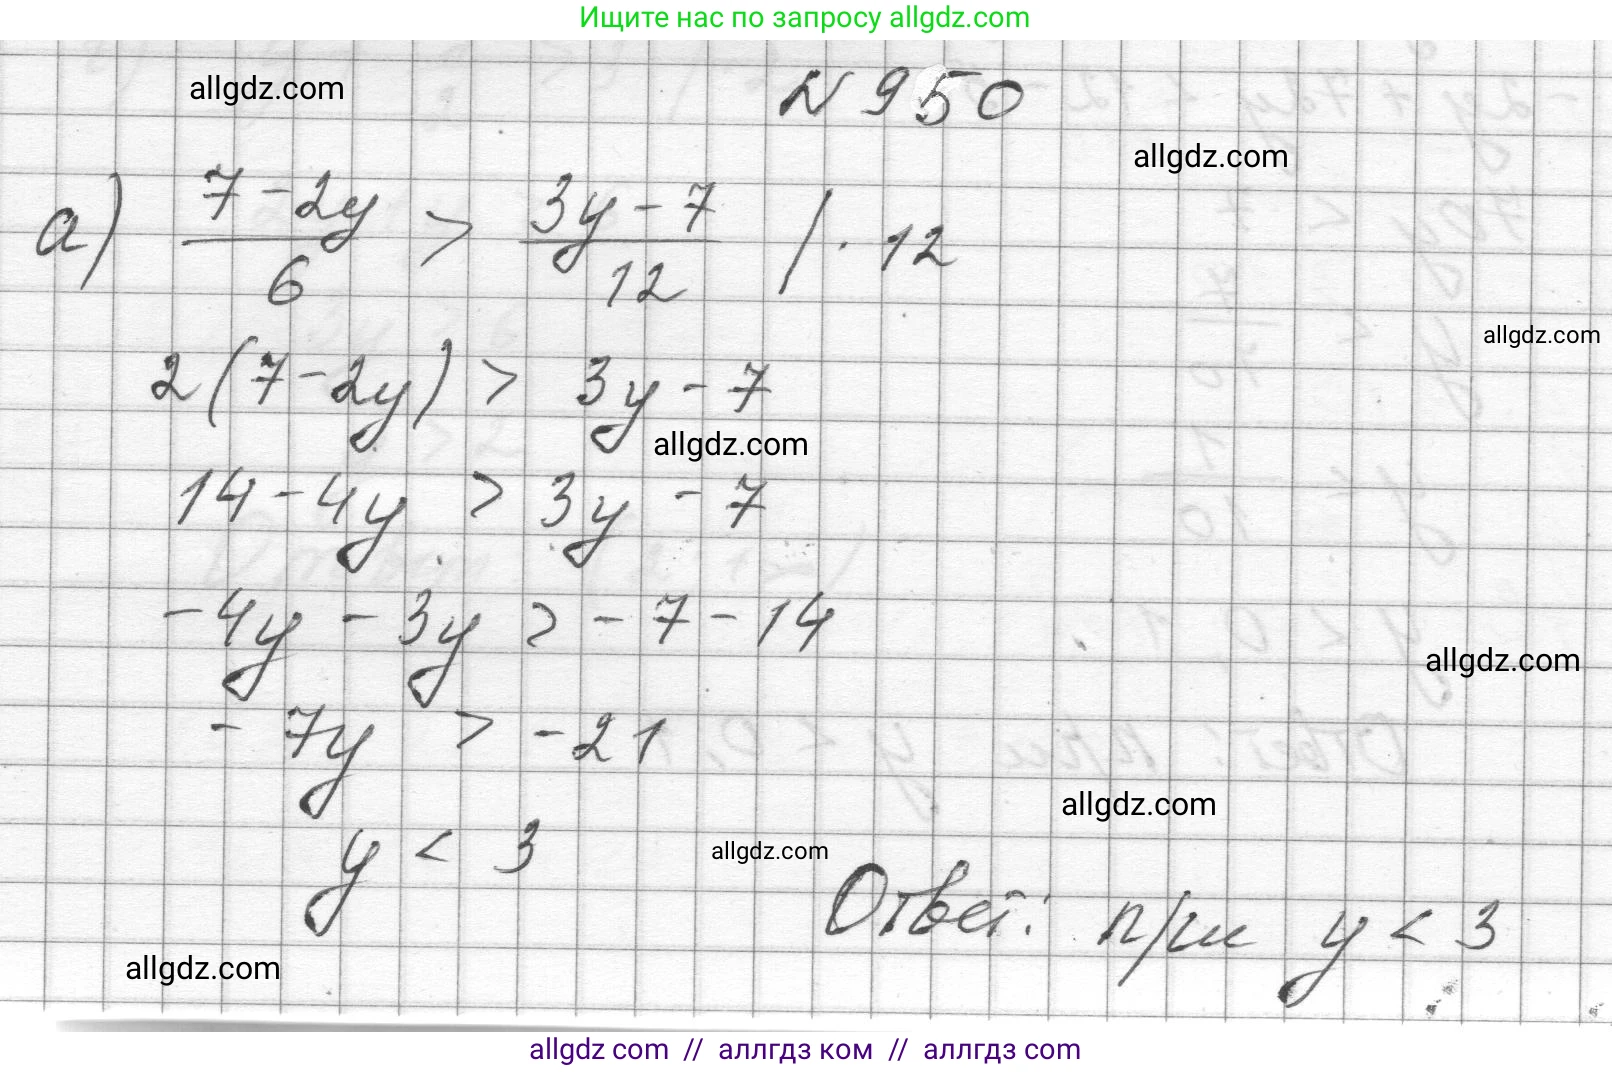 Ищите нас по запросу allgdz.com
allgdz.com
N 950
allgdz.com
а) (7-2y)/6 > (3y-7)/12 / · 12
allgdz.com
2(7-2y) > 3y-7
allgdz.com
14-4y > 3y-7
-4y-3y > -7-14
allgdz.com
-7y > -21
allgdz.com
y < 3
allgdz.com
Ответ: при y < 3
allgdz.com
allgdz com // аллгдз ком // аллгдз com